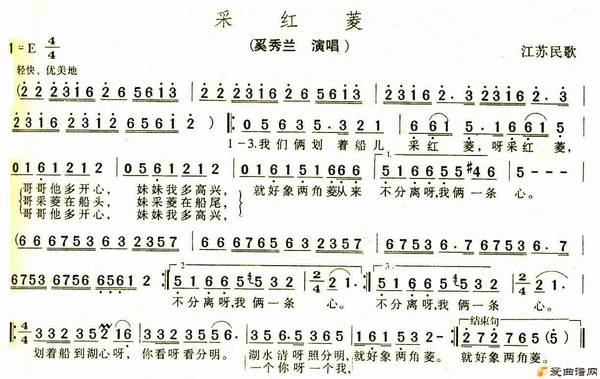 采红菱
1=E 4/4 (奚秀兰 演唱) 江苏民歌
轻快、优美地
(2 2 2 2 3 1 6 2 6 5 6 1 3 2 2 2 3 1 6 2 6 5 6 1 3 2 2 3 1 6 2 3 1 6 2. 3
2 2 3 1 6 2 3 1 6 2 6 5 6 1 2) 0 5 6 3 5. 3 2 1 6 6 1 5. 1 6 6 1 5
1-3.我们俩划着船儿 采红菱,呀采红菱,
0 1 6 1 2 1 2 0 1 6 1 2 1 2 3 3 2 3 5 7 6 6 6 6 5 1 6 6 5 5 #4 6 5
哥哥他多开心, 妹妹我多高兴, 就好象两角菱从来 不分离呀,我俩一条心。
哥采菱在船头, 妹采菱在船尾,
哥哥他多开心, 妹妹我多高兴,
(6 6 6 7 5 3 6 3 2 3 5 7 6 6 6 7 5 3 6 3 2 3 5 7 6 7 5 3 6. 7
6 7 5 3 6 7 5 6 6 5 6 1 2) 5 1 6 6 5 4 5 3 2 2/4 1) 5 1 6 6 5 4 5 3 2 2/4 1
不分离呀,我俩一条 心。 不分离呀,我俩一条 心。
结束句
4/4 3 3 2 3 5 2 1 6 3 3 2 3 5 2 1 3 5 6 5. 6 5 3 2 3 3 2 3 5 7 6 2 7 2 7 6 5 (5)
划着船到湖心呀, 你看呀看分明。 湖水清呀照分明, 就好象两角菱。 就好象两角菱。
一个你呀一个我,
爱曲谱网